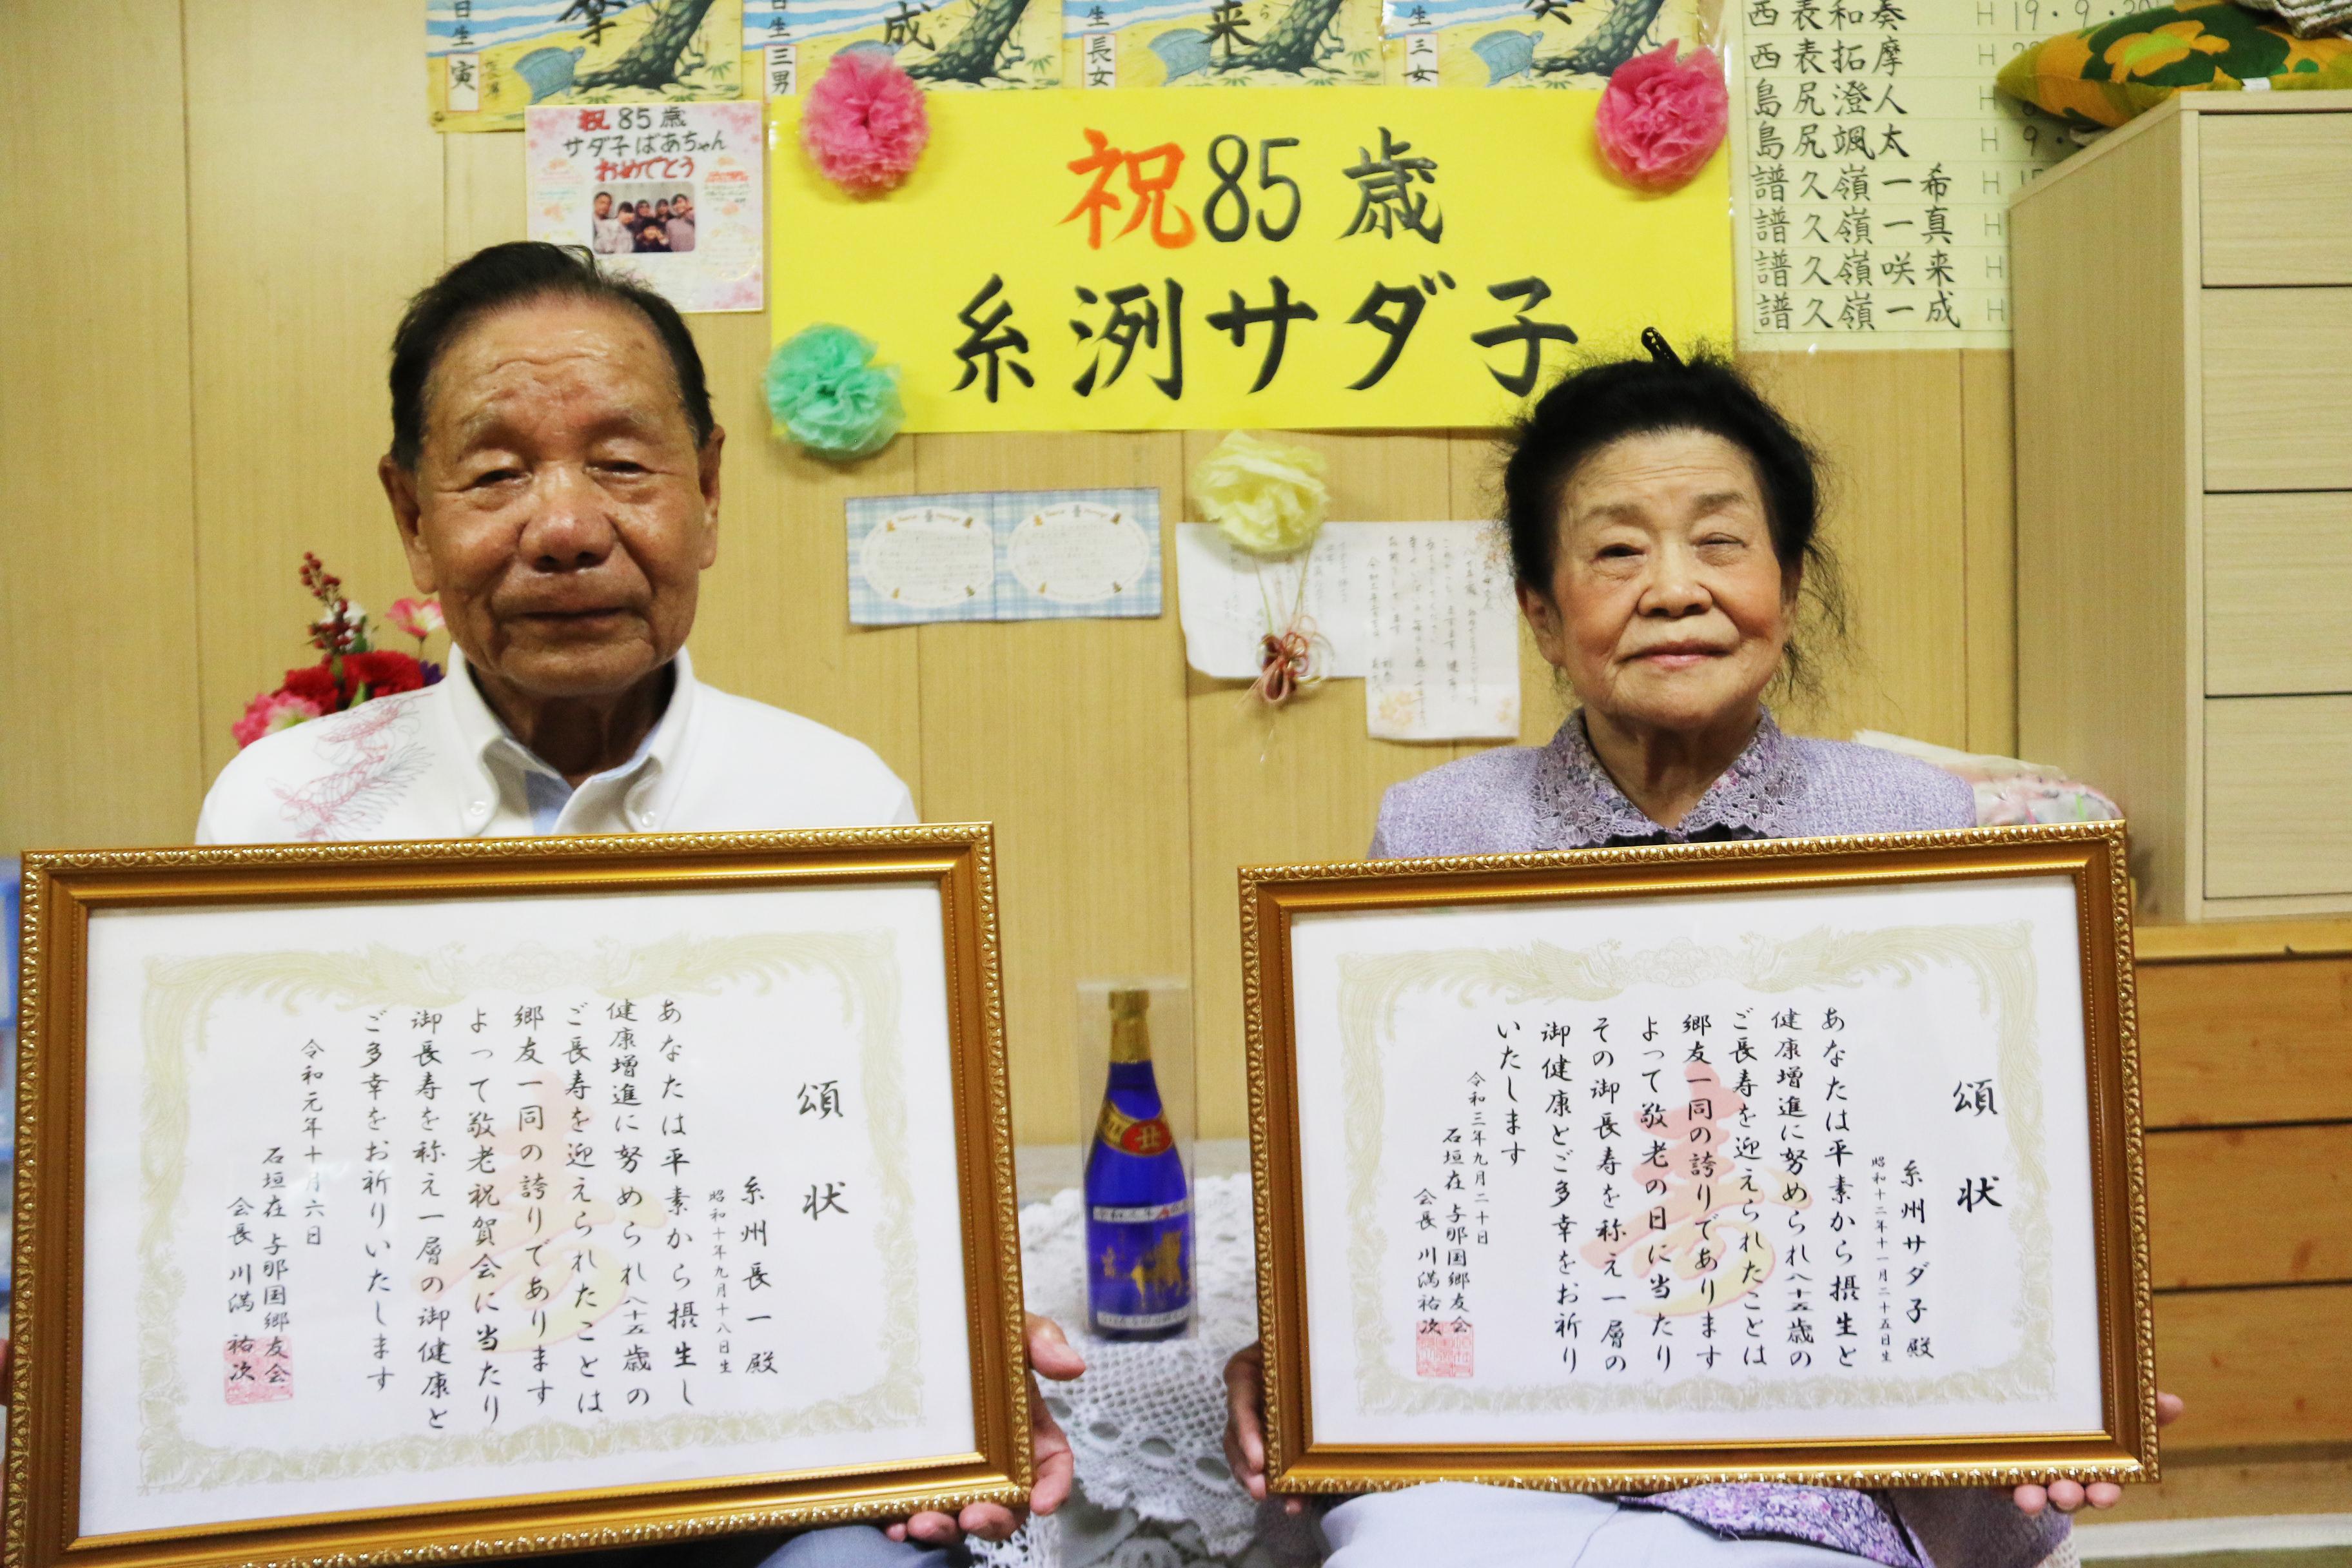 摩
日生
寅
成
日生
三男
来
生
長女
奏
生
三女
祝85歳
サダ子ばあちゃん
おめでとう
祝85歳
糸洌サダ子
西表和奏 H19・9・
西表拓摩 H
島尻澄人 H
島尻颯太 H9・
譜久嶺一希 H
譜久嶺一真 H
譜久嶺咲来 H
譜久嶺一成 H
頌状
糸州長一殿
昭和十年九月十八日生
あなたは平素から摂生し
健康増進に努められ八十五歳の
ご長寿を迎えられたことは
郷友一同の誇りであります
よって敬老祝賀会に当たり
御長寿を称え一層の御健康と
ご多幸をお祈りいたします
令和元年十月六日
石垣在与那国郷友会
会長 川満祐次
頌状
糸州サダ子殿
昭和十二年十一月二十五日生
あなたは平素から摂生と
健康増進に努められ八十五歳の
ご長寿を迎えられたことは
郷友一同の誇りであります
よって敬老の日に当たり
その御長寿を称え一層の
御健康とご多幸をお祈り
いたします
令和三年九月二十日
石垣在与那国郷友会
会長 川満祐次